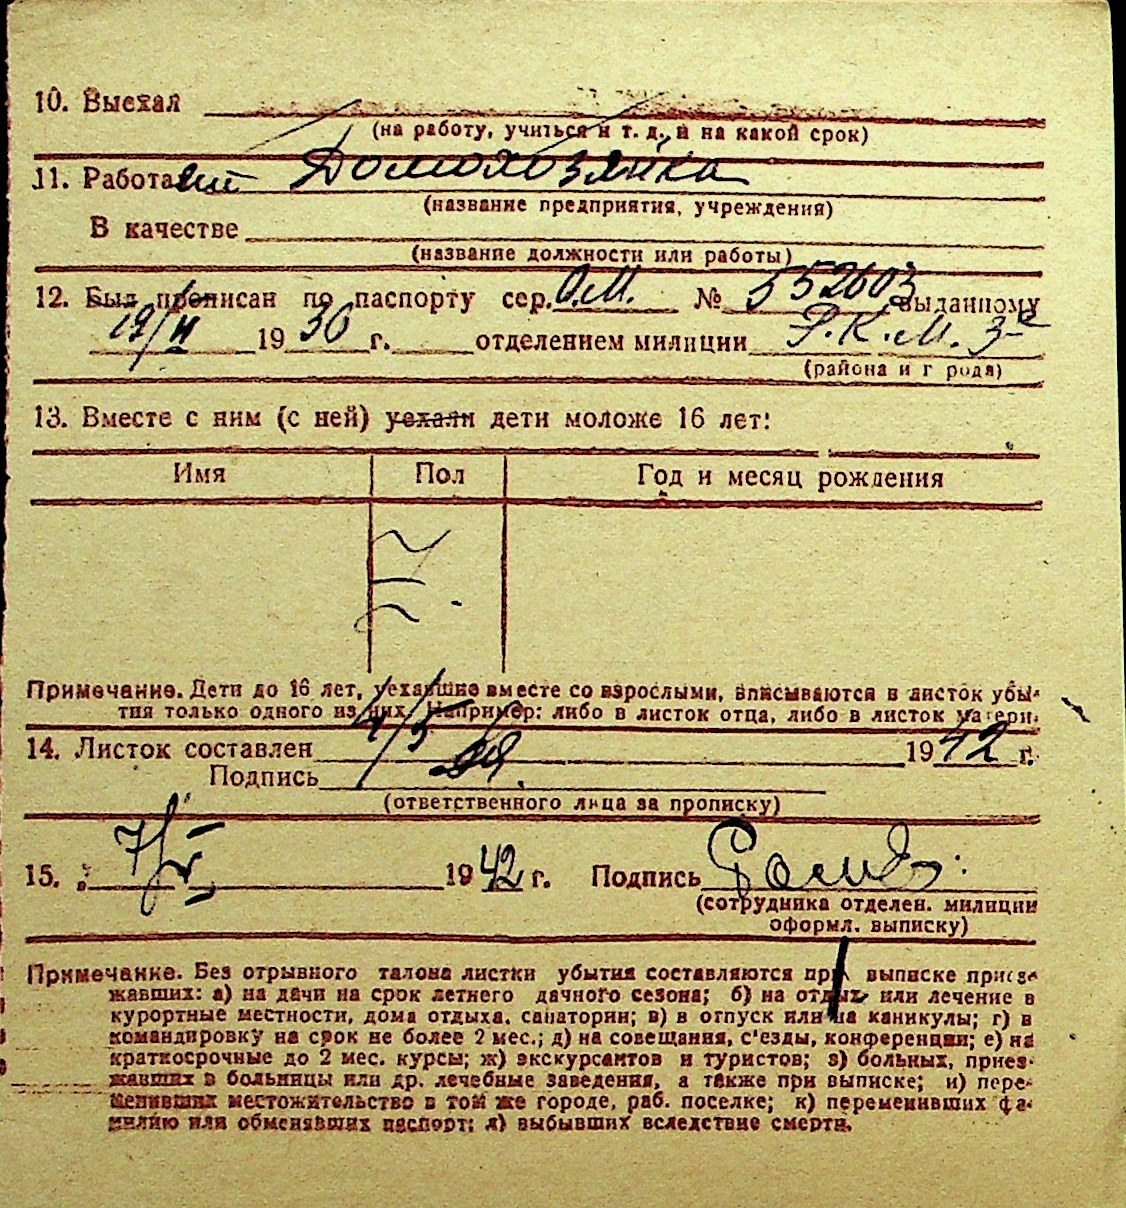 10. Выехал
(на работу, учиться и т. д., и на какой срок)
11. Работа Домохозяйка
(название предприятия, учреждения)
В качестве
(название должности или работы)
12. Был прописан по паспорту сер. О.М. № 552603 выданному
19/II 1936 г. отделением милиции Р.К.М. 3
(района и города)
13. Вместе с ним (с ней) уехали дети моложе 16 лет:
Имя Пол Год и месяц рождения
Примечание. Дети до 16 лет, уехавшие вместе со взрослыми, вписываются в листок убы-
тия только одного из них. Например: либо в листок отца, либо в листок матери.
14. Листок составлен 4/5 1942 г.
Подпись
(ответственного лица за прописку)
15. 7/V 1942 г. Подпись
(сотрудника отделен. милиции
оформл. выписку)
Примечание. Без отрывного талона листки убытия составляются при выписке приез-
жавших: а) на дачи на срок летнего дачного сезона; б) на отдых или лечение в
курортные местности, дома отдыха, санатории; в) в отпуск или на каникулы; г) в
командировку на срок не более 2 мес.; д) на совещания, с'езды, конференции; е) на
краткосрочные до 2 мес. курсы; ж) экскурсантов и туристов; з) больных, приез-
жавших в больницы или др. лечебные заведения, а также при выписке; и) пере-
менивших местожительство в том же городе, раб. поселке; к) переменивших фа-
милию или обменявших паспорт; л) выбывших вследствие смерти.